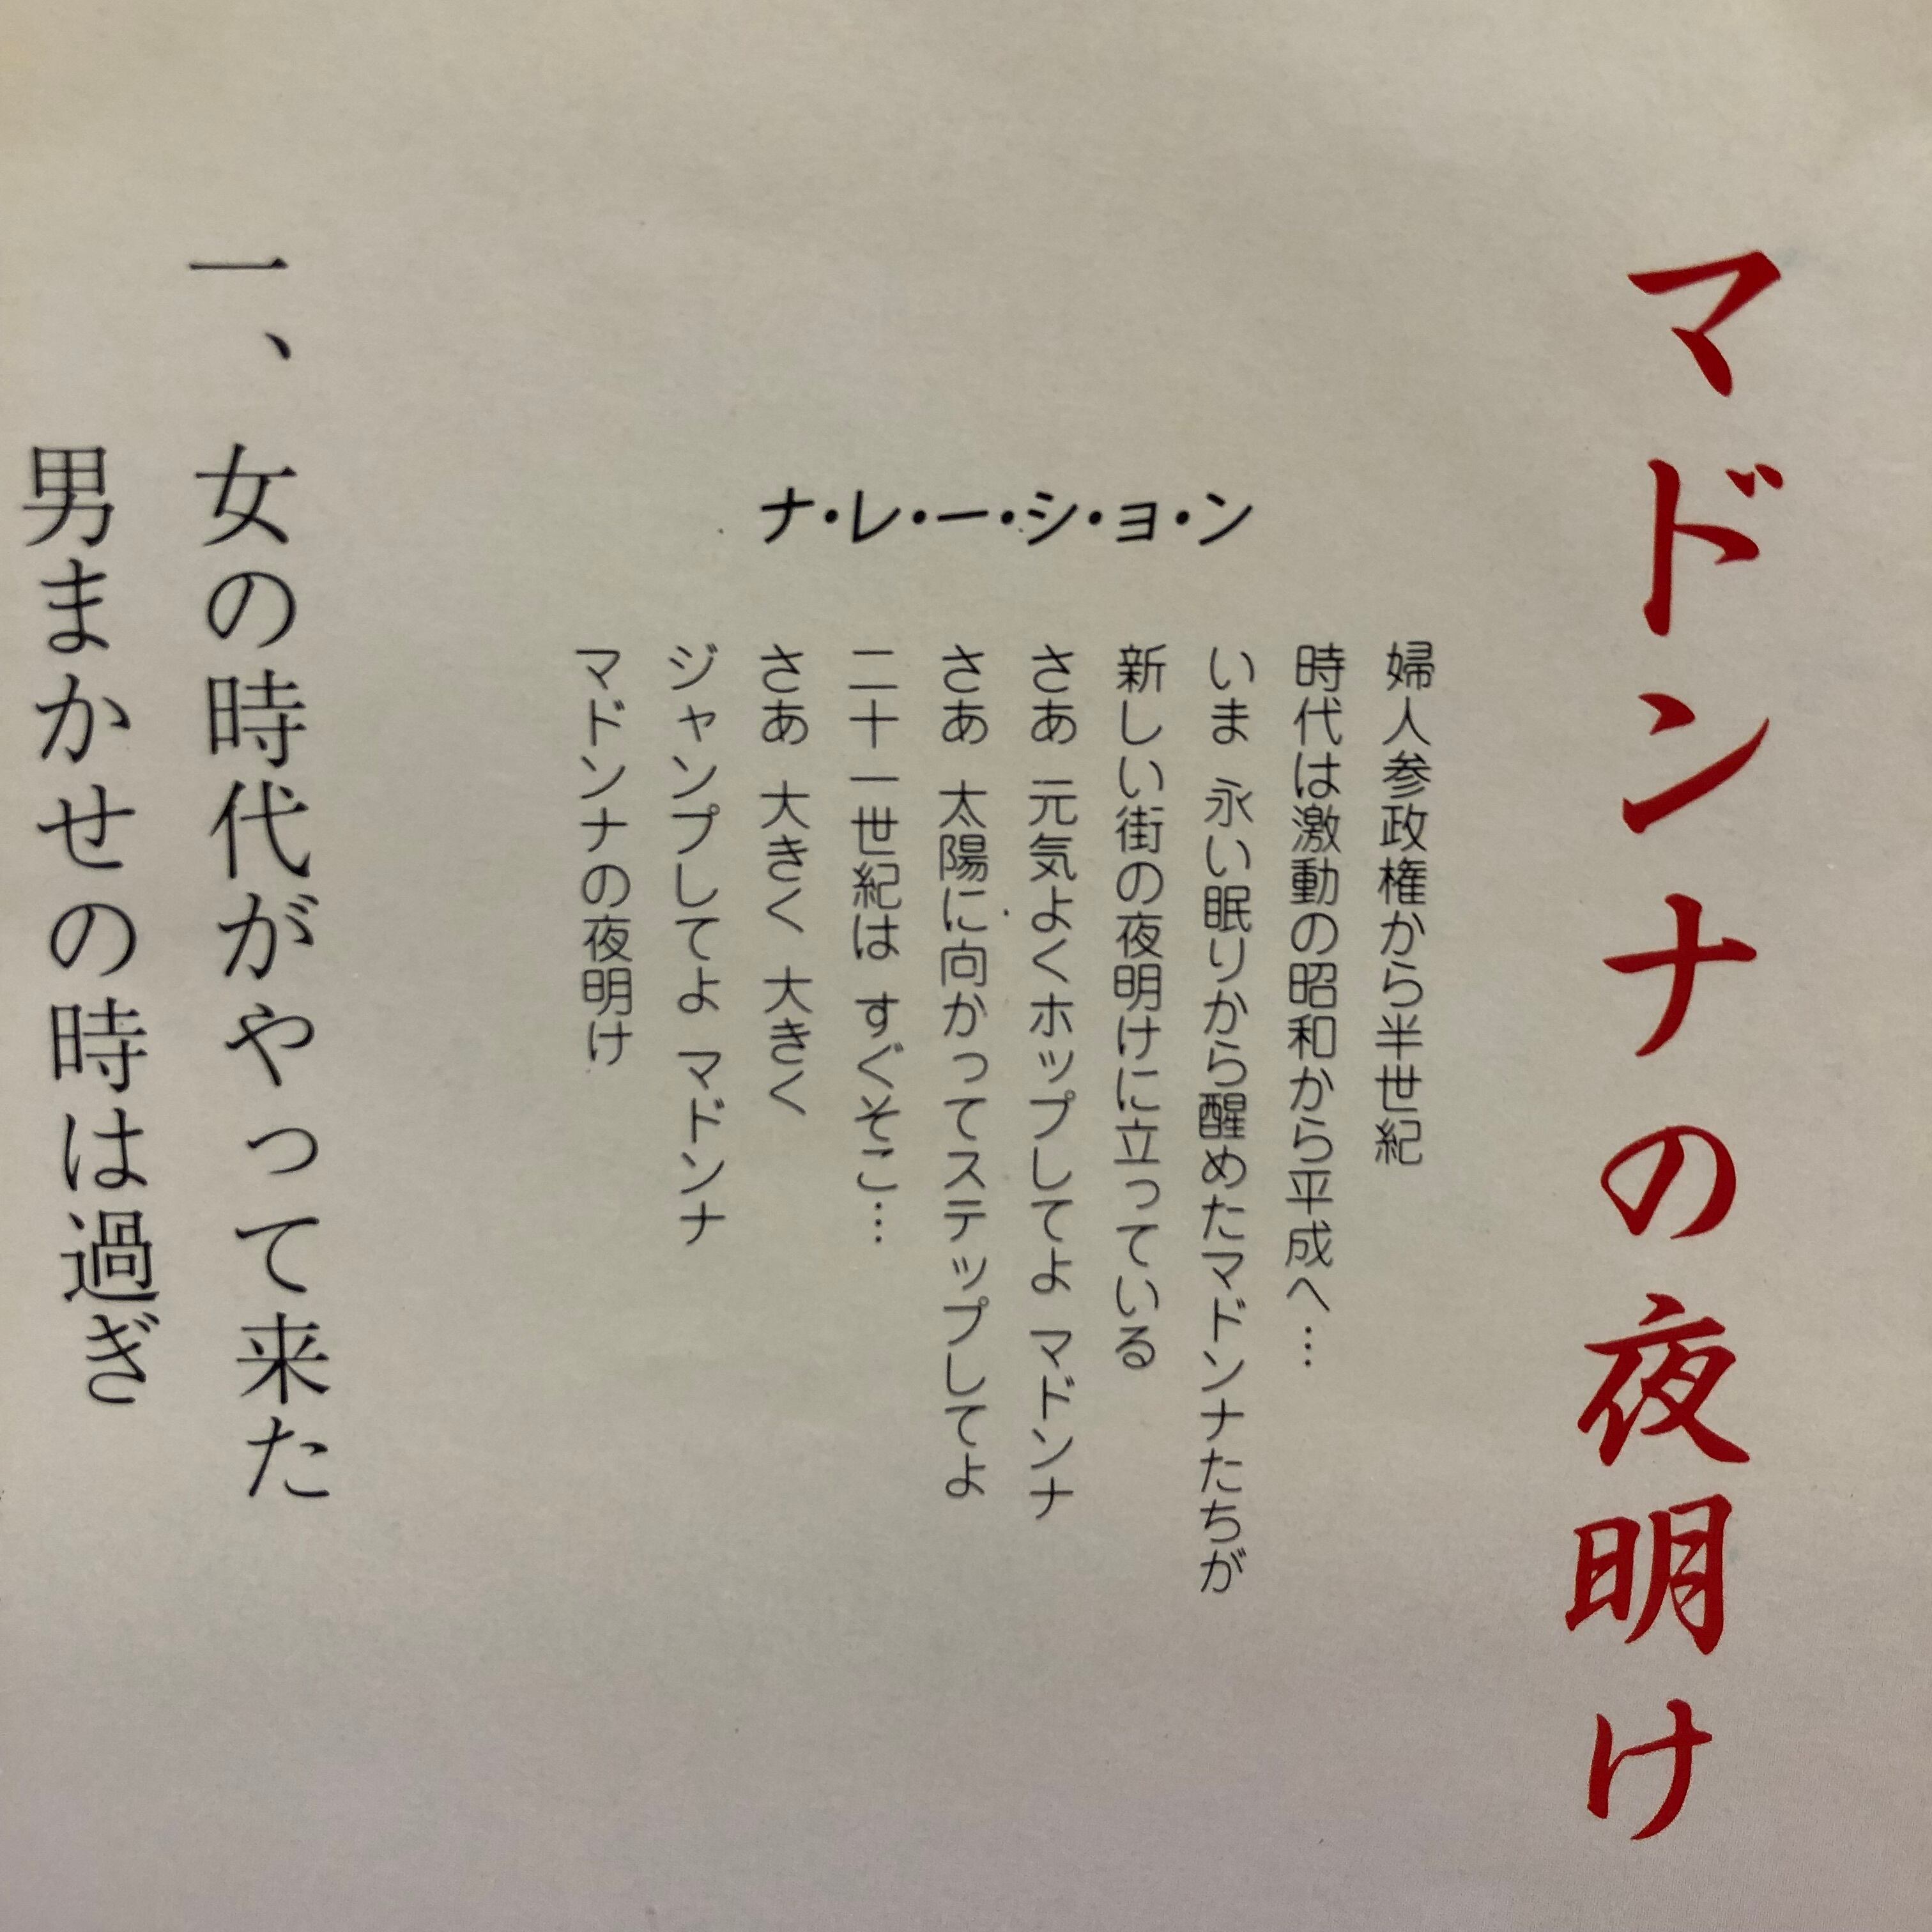 マドンナの夜明け
ナ・レ・ー・シ・ョ・ン
婦人参政権から半世紀
時代は激動の昭和から平成へ…
いま 永い眠りから醒めたマドンナたちが
新しい街の夜明けに立っている
さあ 元気よくホップしてよ マドンナ
さあ 太陽に向かってステップしてよ
二十一世紀は すぐそこ…
さあ 大きく 大きく
ジャンプしてよ マドンナ
マドンナの夜明け
一、女の時代がやって来た
男まかせの時は過ぎ